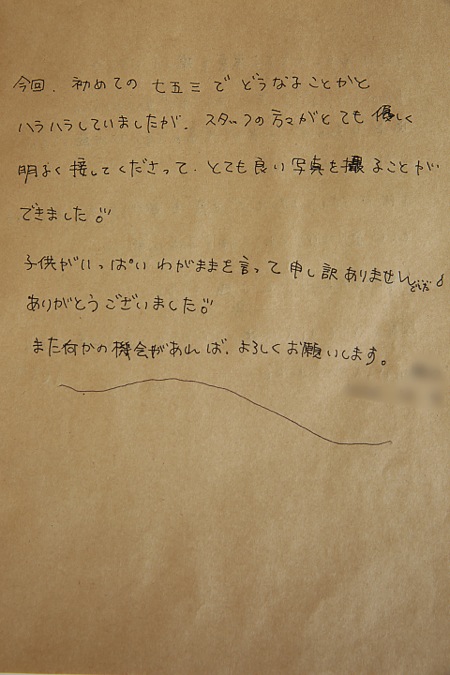 今回、初めての七五三でどうなることかと
ハラハラしていましたが、スタッフの方々がとても優しく
明るく接してくださって、とても良い写真を撮ることが
できました!!
子供がいっぱいわがままを言って申し訳ありません
ありがとうございました!!
また何かの機会があれば、よろしくお願いします。